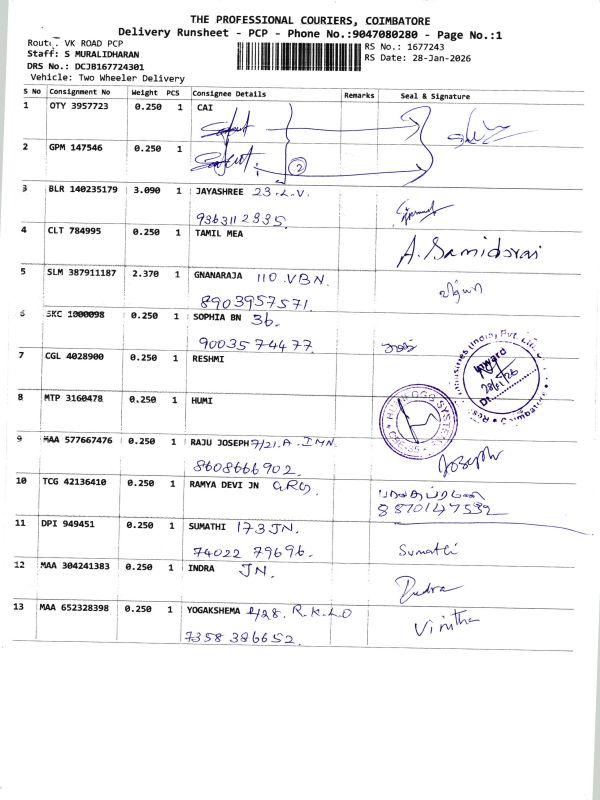 THE PROFESSIONAL COURIERS, COIMBATORE
Delivery Runsheet - PCP - Phone No.:9047080280 - Page No.:1
Route: VK ROAD PCP
RS No.: 1677243
Staff: S MURALIDHARAN
RS Date: 28-Jan-2026
DRS No.: DCJB167724301
Vehicle: Two Wheeler Delivery
S No Consignment No Weight PCS Consignee Details Remarks Seal & Signature
1 OTY 3957723 0.250 1 CAI
2 GPM 147546 0.250 1
2
3 BLR 140235179 3.090 1 JAYASHREE 23.L.V.
9363112335.
4 CLT 784995 0.250 1 TAMIL MEA A. Samidorai
5 SLM 387911187 2.370 1 GNANARAJA 110 VBN.
8903957571.
6 SKC 1000098 0.250 1 SOPHIA BN 36.
9003574477.
7 CGL 4028900 0.250 1 RESHMI
Inward
28/1/26
8 MTP 3160478 0.250 1 HUMI
9 MAA 577667476 0.250 1 RAJU JOSEPH 7/21.A. IMN. Joseph
8608666902.
10 TCG 42136410 0.250 1 RAMYA DEVI JN
8870147532
11 DPI 949451 0.250 1 SUMATHI 173 JN.
74022 79696. Sumathi
12 MAA 304241383 0.250 1 INDRA JN.
Indra
13 MAA 652328398 0.250 1 YOGAKSHEMA R.K.LO Vinitha
7358 386652.